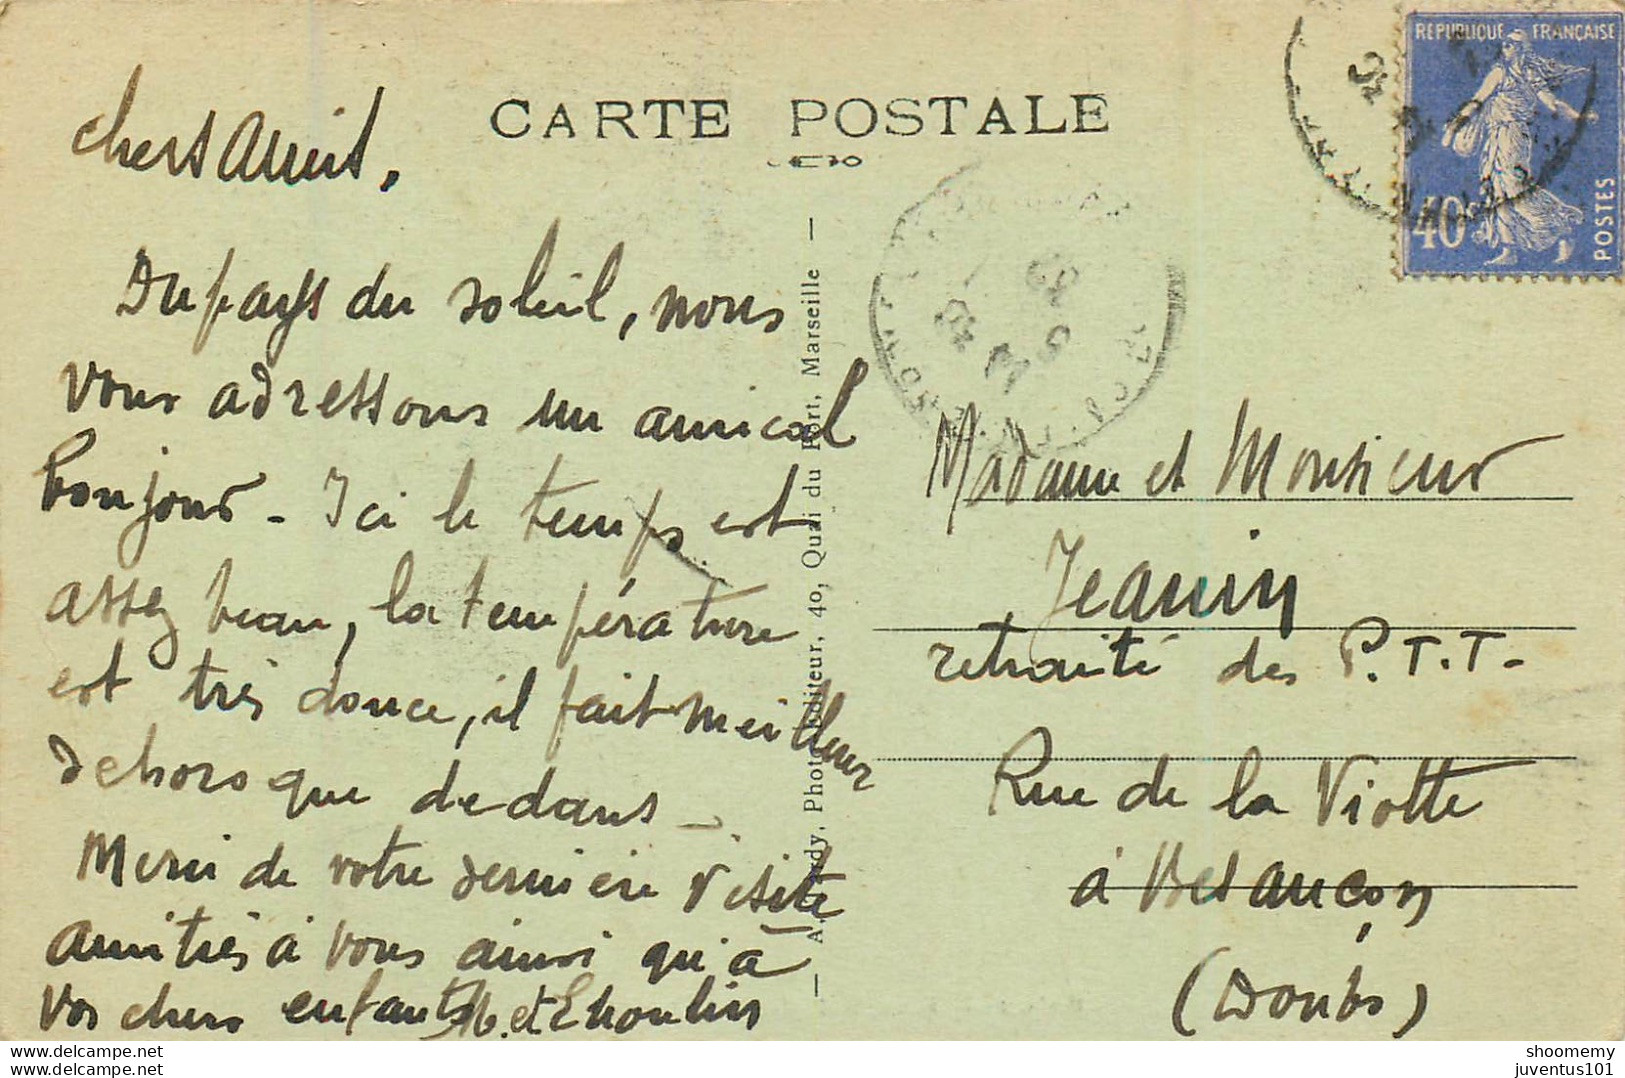 CARTE POSTALE
Chers Amis,
Du pays du soleil, nous
vous adressons un amical
bonjour - Ici le temps est
assez beau, la température
est très douce, il fait meilleur
dehors que dedans -
Merci de votre dernière visite
amitiés à vous ainsi qu'à
vos chers enfants
Photo-Editeur, 40, Quai du Port, Marseille
REPUBLIQUE FRANÇAISE
40c
POSTES
Madame et Monsieur
Jeanin
retraité des P.T.T-
Rue de la Viotte
à Besançon
(Doubs)
www.delcampe.net
shoomemy
www.delcampe.net
juventus101